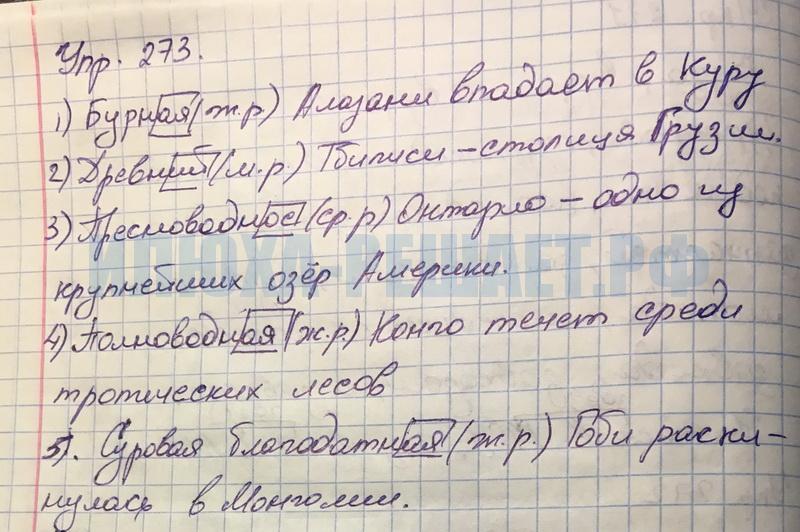 Упр. 273.
1) Бурная (ж.р) Алазани впадает в Куру
2) Древний (м.р.) Тбилиси – столица Грузии.
3) Пресноводное (ср.р) Онтарио – одно из
крупнейших озёр Америки.
4) Полноводная (ж.р.) Конго течет среди
тропических лесов
5). Суровая благодатная (ж.р.) Гоби раски-
нулась в Монголии.
ИЛЮХА-РЕШАЕТ.РФ